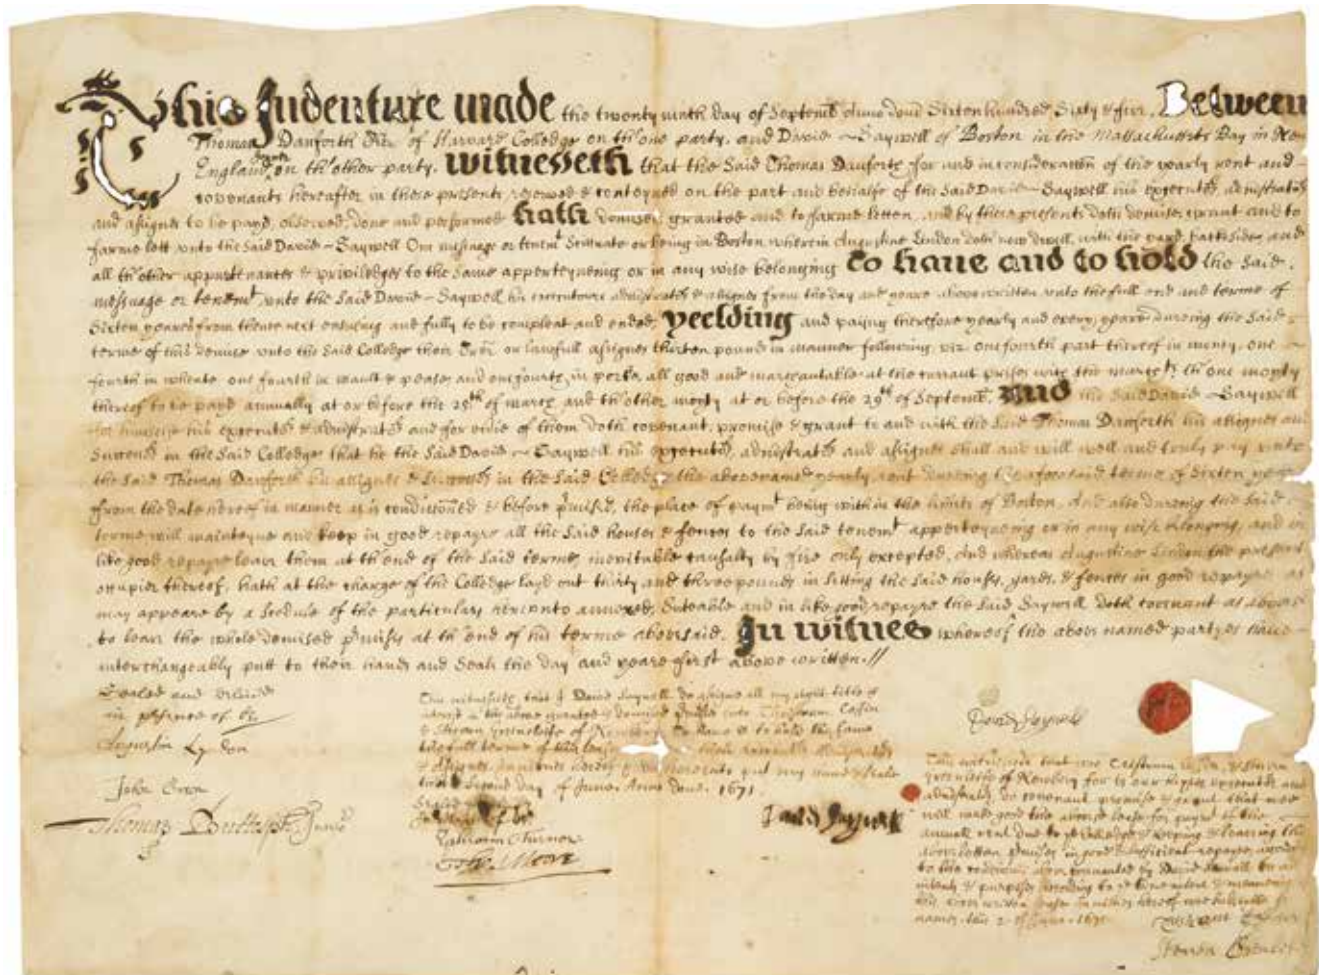 This Indenture made the twenty ninth day of Septemb. Anno Domi Sixteen hundred Sixty & five, Between
Thomas Danforth Trer of Harvard Colledge on th'one party, and David Saywell of Boston in the Massachusetts Bay in New
England, on th'other party. witnesseth that the Said Thomas Danforth for and in consideration of the yearly rent and
covenants hereafter in these presents reserved & conteyned on the part and behalfe of the Said David Saywell his executrs, administratrs
and assignes to be payd, observed, done and performed hath demised granted and to farme letten, and by these presents doth demise grant and to
farme lett unto the Said David Saywell One messuage or tenemt Scittuate or being in Boston, wherein Augustine Lindon doth now dwell, with the yard, backside, and
all th'other appurtenances & priviledges to the Same apperteyneing or in any wise belonging to have and to hold the Said
messuage or tenemt, unto the Said David Saywell his executrs administratrs & assignes from the day and yeare above written unto the full end and terme of
Sixteen yeares from thence next ensueing and fully to be compleat and ended, yeelding and paying therefore yearly and every yeare dureing the Said
terme of this demise unto the Said Colledge their Trer or lawfull assignes thirteen pounds in manner following, viz one fourth part thereof in money, one
fourth in wheate one fourth in mault & pease, and one fourth, in porke, all good and marchantable at the currant prises with the marchts th'one moyty
thereof to be payd annually at or before the 25th of march and th'other moyty at or before the 29th of Septemb. And the Said David Saywell
for himselfe his executrs & administratrs and for everie of them doth covenant, promise & grant to and with the Said Thomas Danforth his assignes and
Successrs in the Said Colledge that he the Said David Saywell his executrs, administratrs and assignes shall and will well and truly pay unto
the Said Thomas Danforth his assignes & Successrs in the Said Colledge the abovenamed yearly rent dureing the aforesaid terme of Sixteen yeares
from the date hereof in manner as is conditioned & before p'mised, the place of paymt being within the limits of Boston, And also dureing the Said
terme will mainteyne and keep in good repayre all the Said houses & fences to the Said tenemt apperteyneing or in any wise belonging, and in
like good repayre leave them at th'end of the Said terme, inevitable casualty by fire only excepted, And whereas Augustine Lindon the present
occupier thereof, hath at the charge of the Colledge layd out thirty and three pounds in Setting the Said houses, yards, & fences in good repayre, as
may appeare by a Scedule of the particulars hereunto annexed, Suteable and in like good repayre the Said Saywell doth covenant as above
to leave the whole demised p'mises at th'end of his terme abovesaid. In witnes whereof the above named partyes have
interchangeably putt to their hands and Seals the day and yeare first above written.//
Sealed and delivered
in presence of us
Augustin Lyndon
John
Thomas Buttolph, Junior
This witneseth, that I David Saywell do assigne all my right title &
interest in the above granted & demised p'mises unto Tristram Coffin
& Steven Greenleife of Newbery To have & to hold the Same
the full terme of this lease their executrs
& assignes, In witnes hereof I have hereunto put my hand & Seale
this Second day of June Anno Domi. 1671.
Ephraim Turner
David Saywell
David Saywell
This witneseth that we Tristram Coffin, & Steven
Greenleife of Newbery for us our heyres executrs and
administrs, do covenant promise & engage that wee
will make good the above lease for paymt of the
annuall rent due to the Colledge & keeping & leaving the
above letten p'mises in good & sufficient repayre according
to the covenant by David Saywell to all
intents & purposes according to the true intent & meaning
names this 2 of June 1671